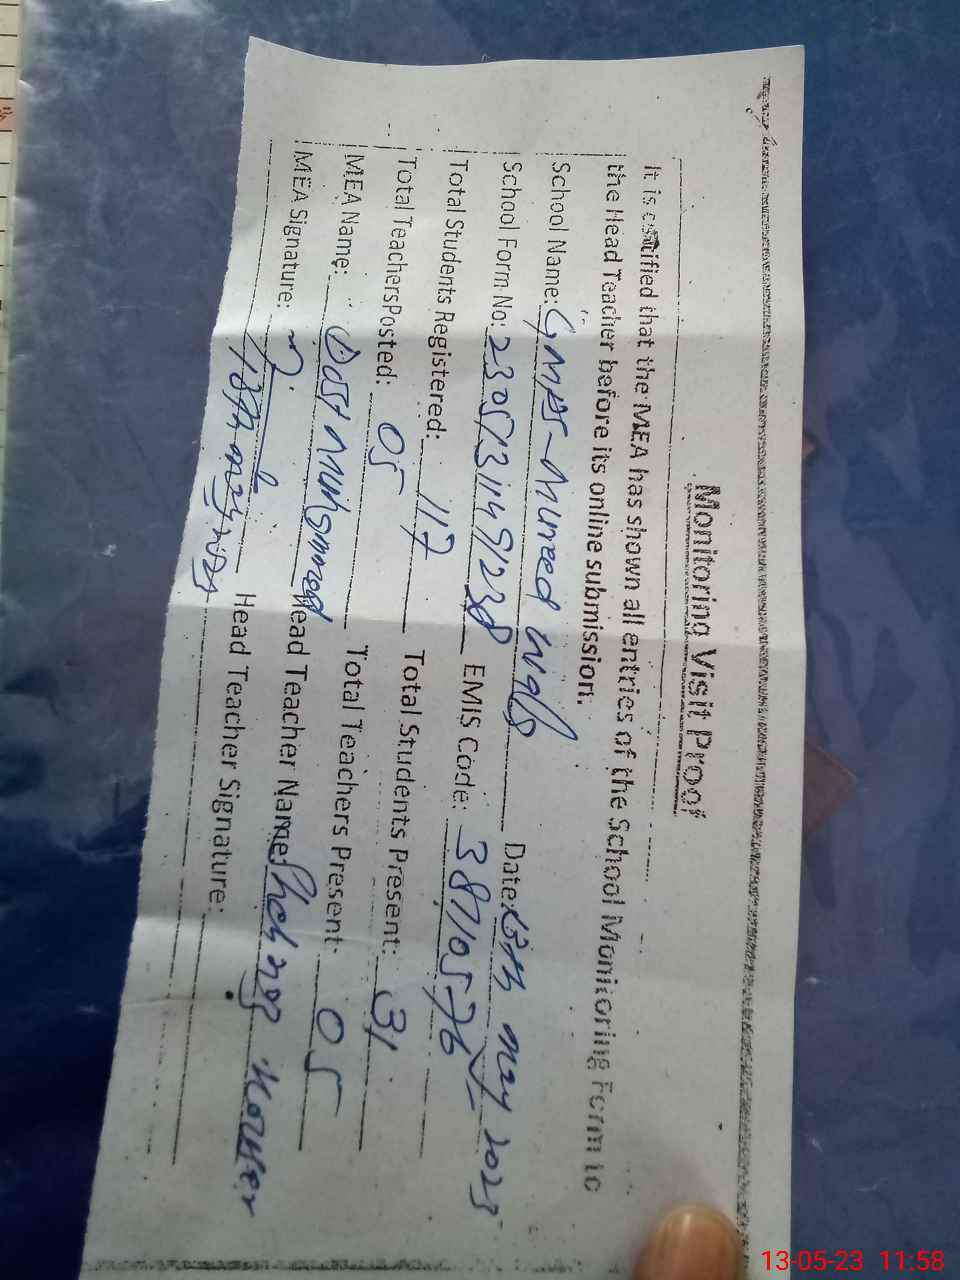 Monitoring Visit Proof
It is certified that the MEA has shown all entries of the School Monitoring Form to
the Head Teacher before its online submission.
School Name: GMPS-Mureed Wala Date: 13th may 2023
School Form No: EMIS Code: 38710576
Total Students Registered: 117 Total Students Present: 31
Total Teachers Posted: 05 Total Teachers Present: 05
MEA Name: Dost Muhammad Head Teacher Name: Shehnaz Kouser
MEA Signature: Head Teacher Signature:
13th may 2023
13-05-23 11:58